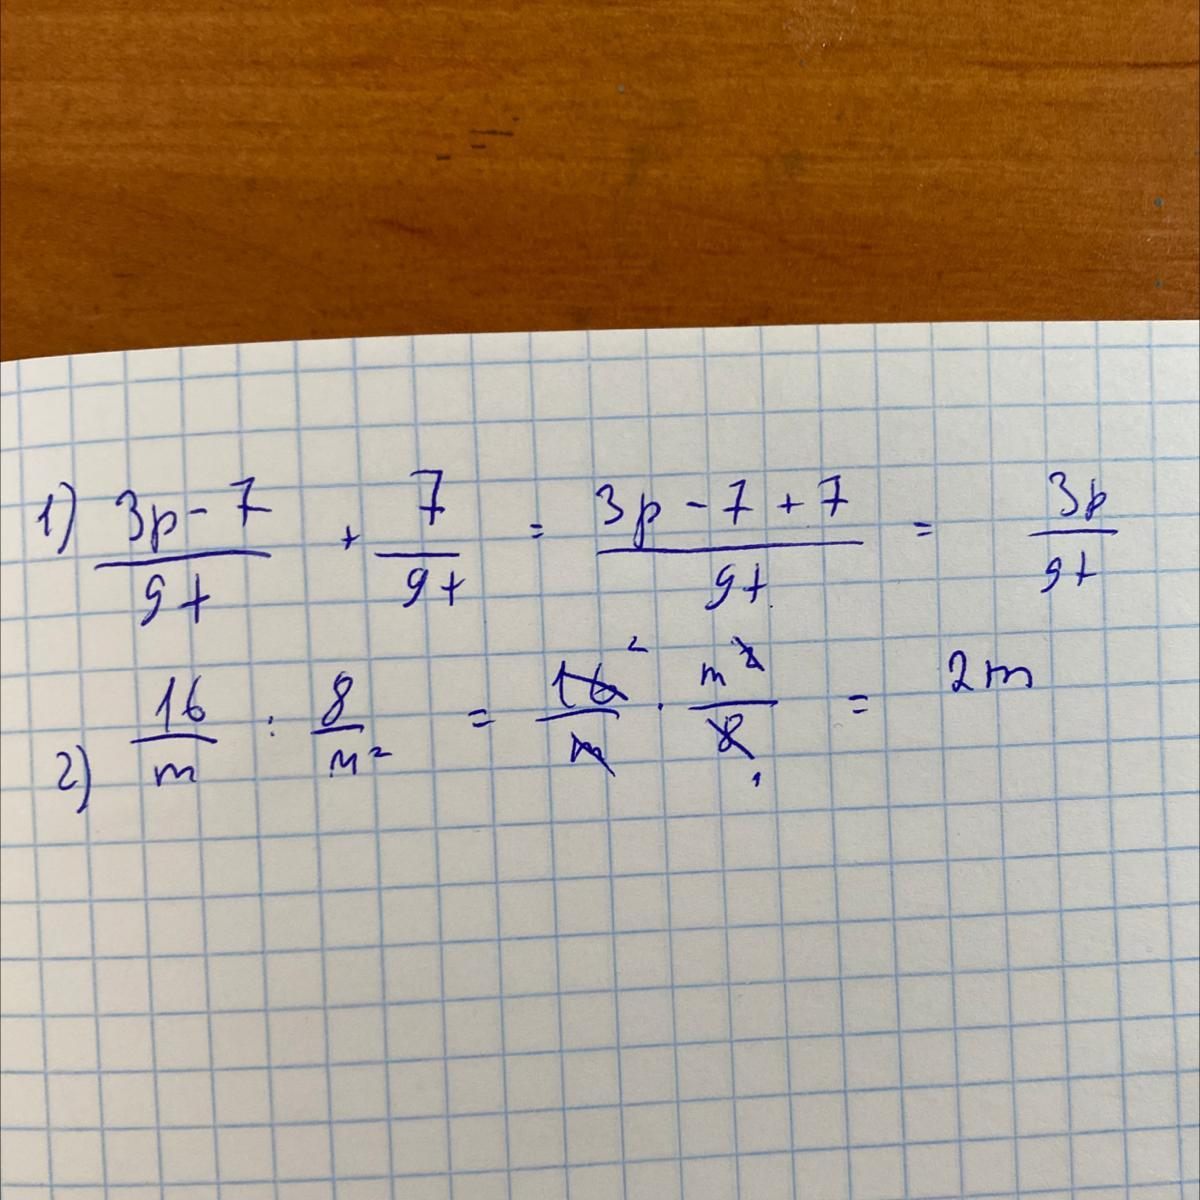 1) (3p - 7)/(9t) + 7/(9t) = (3p - 7 + 7)/(9t) = 3p/(9t)
2) 16/m : 8/m² = 16²/m · m²/8₁ = 2m